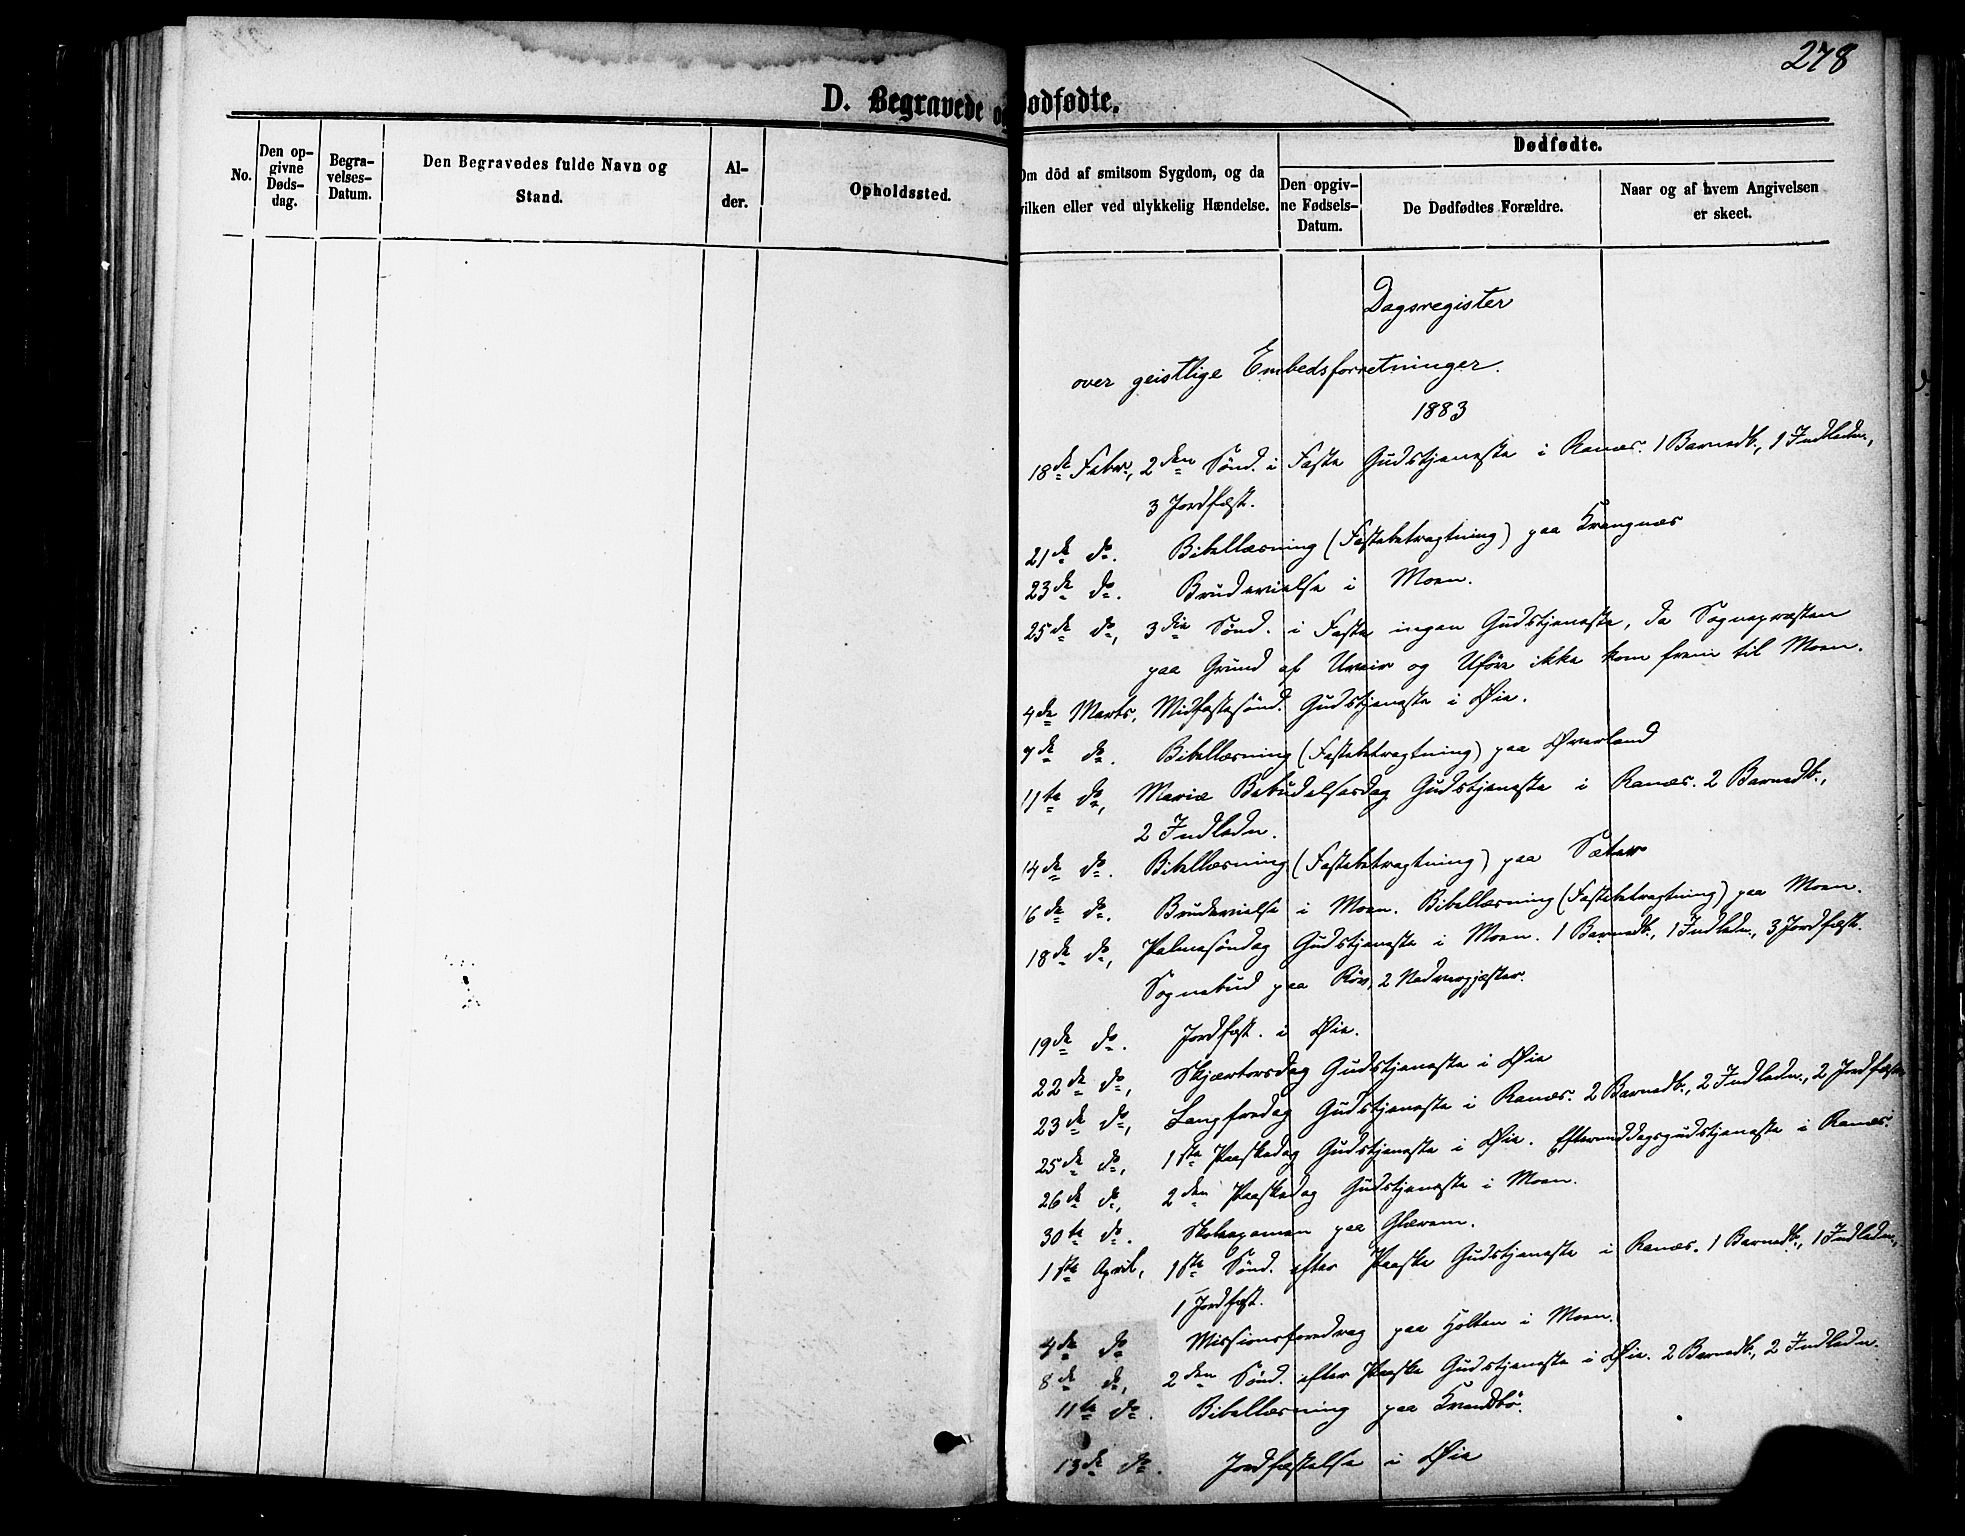 278
D. Begravede og Dødfødte.
No.
Den opgivne Dødsdag.
Begravelses-Datum.
Den Begravedes fulde Navn og Stand.
Alder.
Opholdssted.
Om död af smitsom Sygdom, og da
vilken eller ved ulykkelig Hændelse.
Dødfødte.
Den opgivne Fødsels-Datum.
De Dødfødtes Forældre.
Naar og af hvem Angivelsen er skeet.
Dagsregister
over geistlige Embedsforretninger.
1883
18de Febr., 2den Sönd. i Faste Gudstjeneste i Ranes. 1 Barnedb., 1 Indledn.,
3 Jordfæst.
21de do. Bibellæsning (Fastebetragtning) paa Krangnæs
23de do. Brudevielse i Moen.
25de do, 3die Sönd. i Faste ingen Gudstjeneste, da Sognepræsten
paa Grund af Uveir og Uföre ikke kom frem til Moen.
4de Marts, Midfastesönd. Gudstjeneste i Øie.
7de do. Bibellæsning (Fastebetragtning) paa Øverland
11te do, Mariæ Bebudelsesdag Gudstjeneste i Ranæs. 2 Barnedb.,
2 Indledn.
14de do. Bibellæsning (Fastebetragtning) paa Sæter
16de do. Brudevielse i Moen. Bibellæsning (Fastebetragtning) paa Moen.
18de do, Palmesöndag Gudstjeneste i Moen. 1 Barnedb., 1 Indledn., 3 Jordfæst.
Sognebud paa Röv, 2 Nadvergjæster.
19de do. Jordfæst. i Øie.
22de do, Skjærtorsdag Gudstjeneste i Øie
23de do, Langfredag Gudstjeneste i Ranæs. 2 Barnedb., 2 Indledn., 2 Jordfæste
25de do, 1ste Paaskedag Gudstjeneste i Øie. Eftermiddagsgudstjeneste i Ranæs.
26de do, 2den Paaskedag Gudstjeneste i Moen.
30te do. Skoleexamen paa Glærem.
1ste April, 1ste Sönd. efter Paaske Gudstjeneste i Ranæs. 1 Barnedb., 1 Indledn.,
1 Jordfæst.
4de do Missionsforedrag paa Holten i Moen.
8de do, 2den Sönd. efter Paaske Gudstjeneste i Øie. 2 Barnedb., 2 Indledn.
11te do. Bibellæsning paa Kvandbö.
13de do. Jordfæstelse i Øie